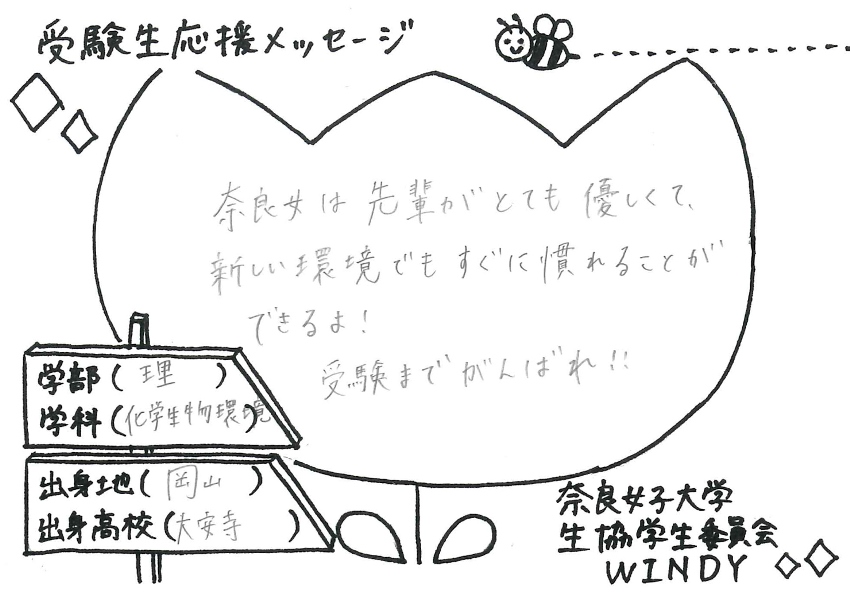 受験生応援メッセージ
奈良女は先輩がとても優しくて、
新しい環境でもすぐに慣れることが
できるよ!
受験までがんばれ!!
学部(理)
学科(化学生物環境)
出身地(岡山)
出身高校(大安寺)
奈良女子大学
生協学生委員会
WINDY